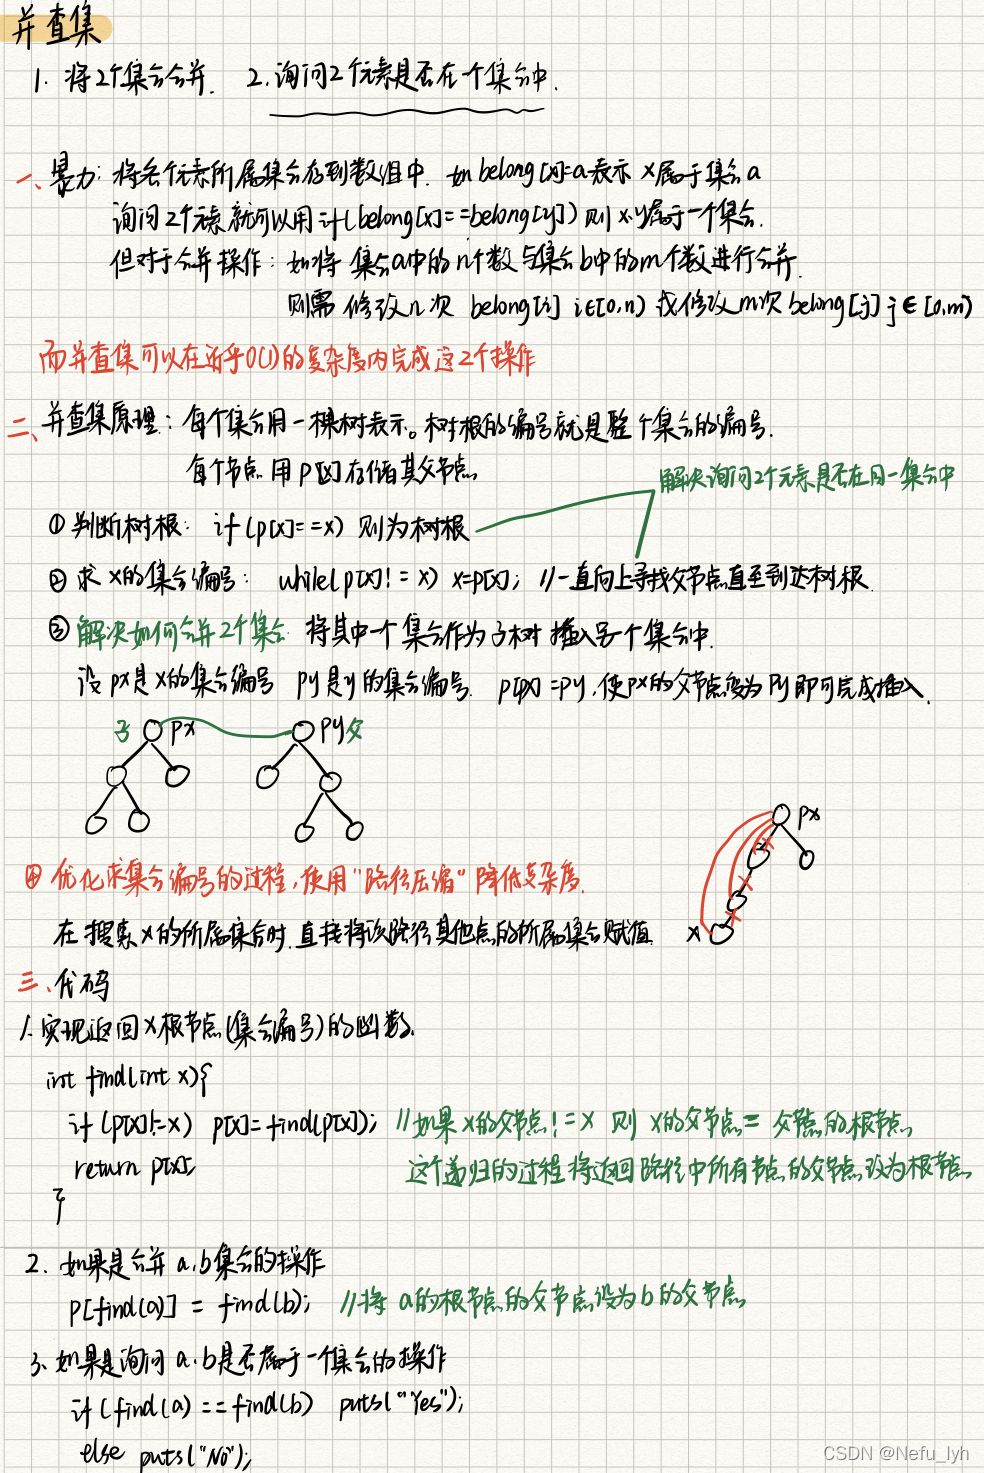 并查集
1. 将2个集合合并. 2.询问2个元素是否在一个集合中.
一、暴力: 将各个元素所属集合存到数组中. 如belong[x]=a表示 x属于集合a
询问2个元素就可以用 if(belong[x]==belong[y]) 则 x.y属于一个集合.
但对于合并操作: 如将 集合a中的n个数与集合b中的m个数进行合并.
则需 修改n次 belong[i] i∈[0,n) 或修改m次 belong[j] j∈[0,m)
而并查集可以在近乎O(1)的复杂度内完成这2个操作
二、并查集原理: 每个集合用一棵树表示。树根的编号就是整个集合的编号.
每个节点 用 p[x] 存储其父节点
解决询问2个元素是否在同一集合中
① 判断树根: if (p[x]==x) 则为树根
② 求 x的集合编号: while(p[x]!=x) x=p[x]; //一直向上寻找父节点直至到达树根.
③ 解决如何合并2个集合: 将其中一个集合作为子树 插入另一个集合中.
设 px是x的集合编号 py是y的集合编号. p[px]=py, 使px的父节点变为py即可完成插入.
子 px py父
px
④ 优化求集合编号的过程, 使用“路径压缩”降低复杂度.
在搜索x的所属集合时.直接将该路径其他点的所属集合赋值. x
三、代码
1. 实现返回x根节点(集合编号)的函数.
int find(int x){
if (p[x]!=x) p[x]=find(p[x]); //如果x的父节点!=x 则 x的父节点= 父节点的根节点
return p[x]; 这个递归的过程将返回路径中所有节点的父节点改为根节点
}
2. 如果是合并 a.b集合的操作
p[find(a)] = find(b); //将 a的根节点的父节点设为b的父节点
3. 如果是询问 a.b是否属于一个集合的操作
if (find(a)==find(b) puts("Yes");
else puts("No");
CSDN @Nefu_lyh